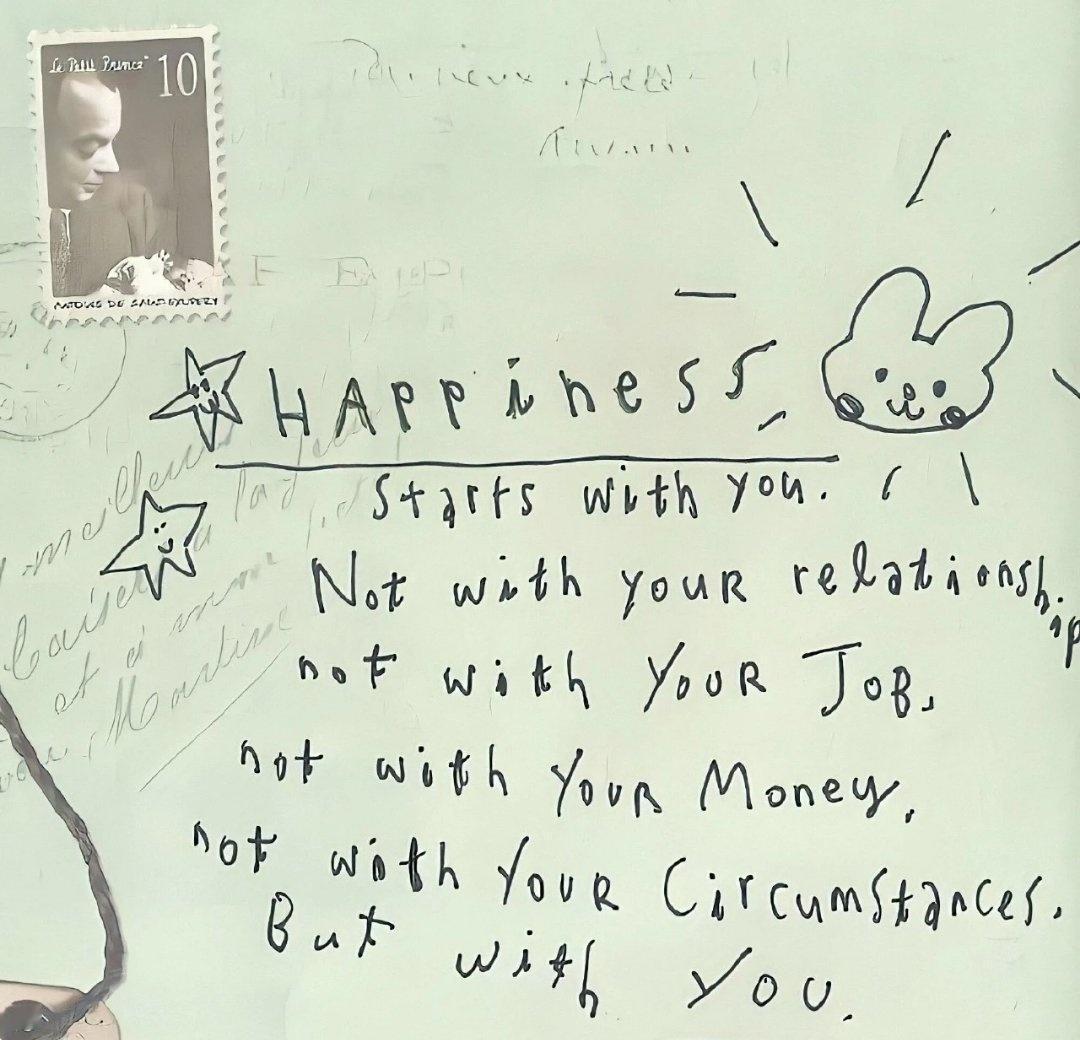 Le Petit Prince
10
ANTOINE DE SAINT-EXUPÉRY
HAPPiness
Starts with you.
Not with your relationship
not with Your Job,
not with Your Money,
not with Your Circumstances.
But with You.
meilleurs
et à
Martine